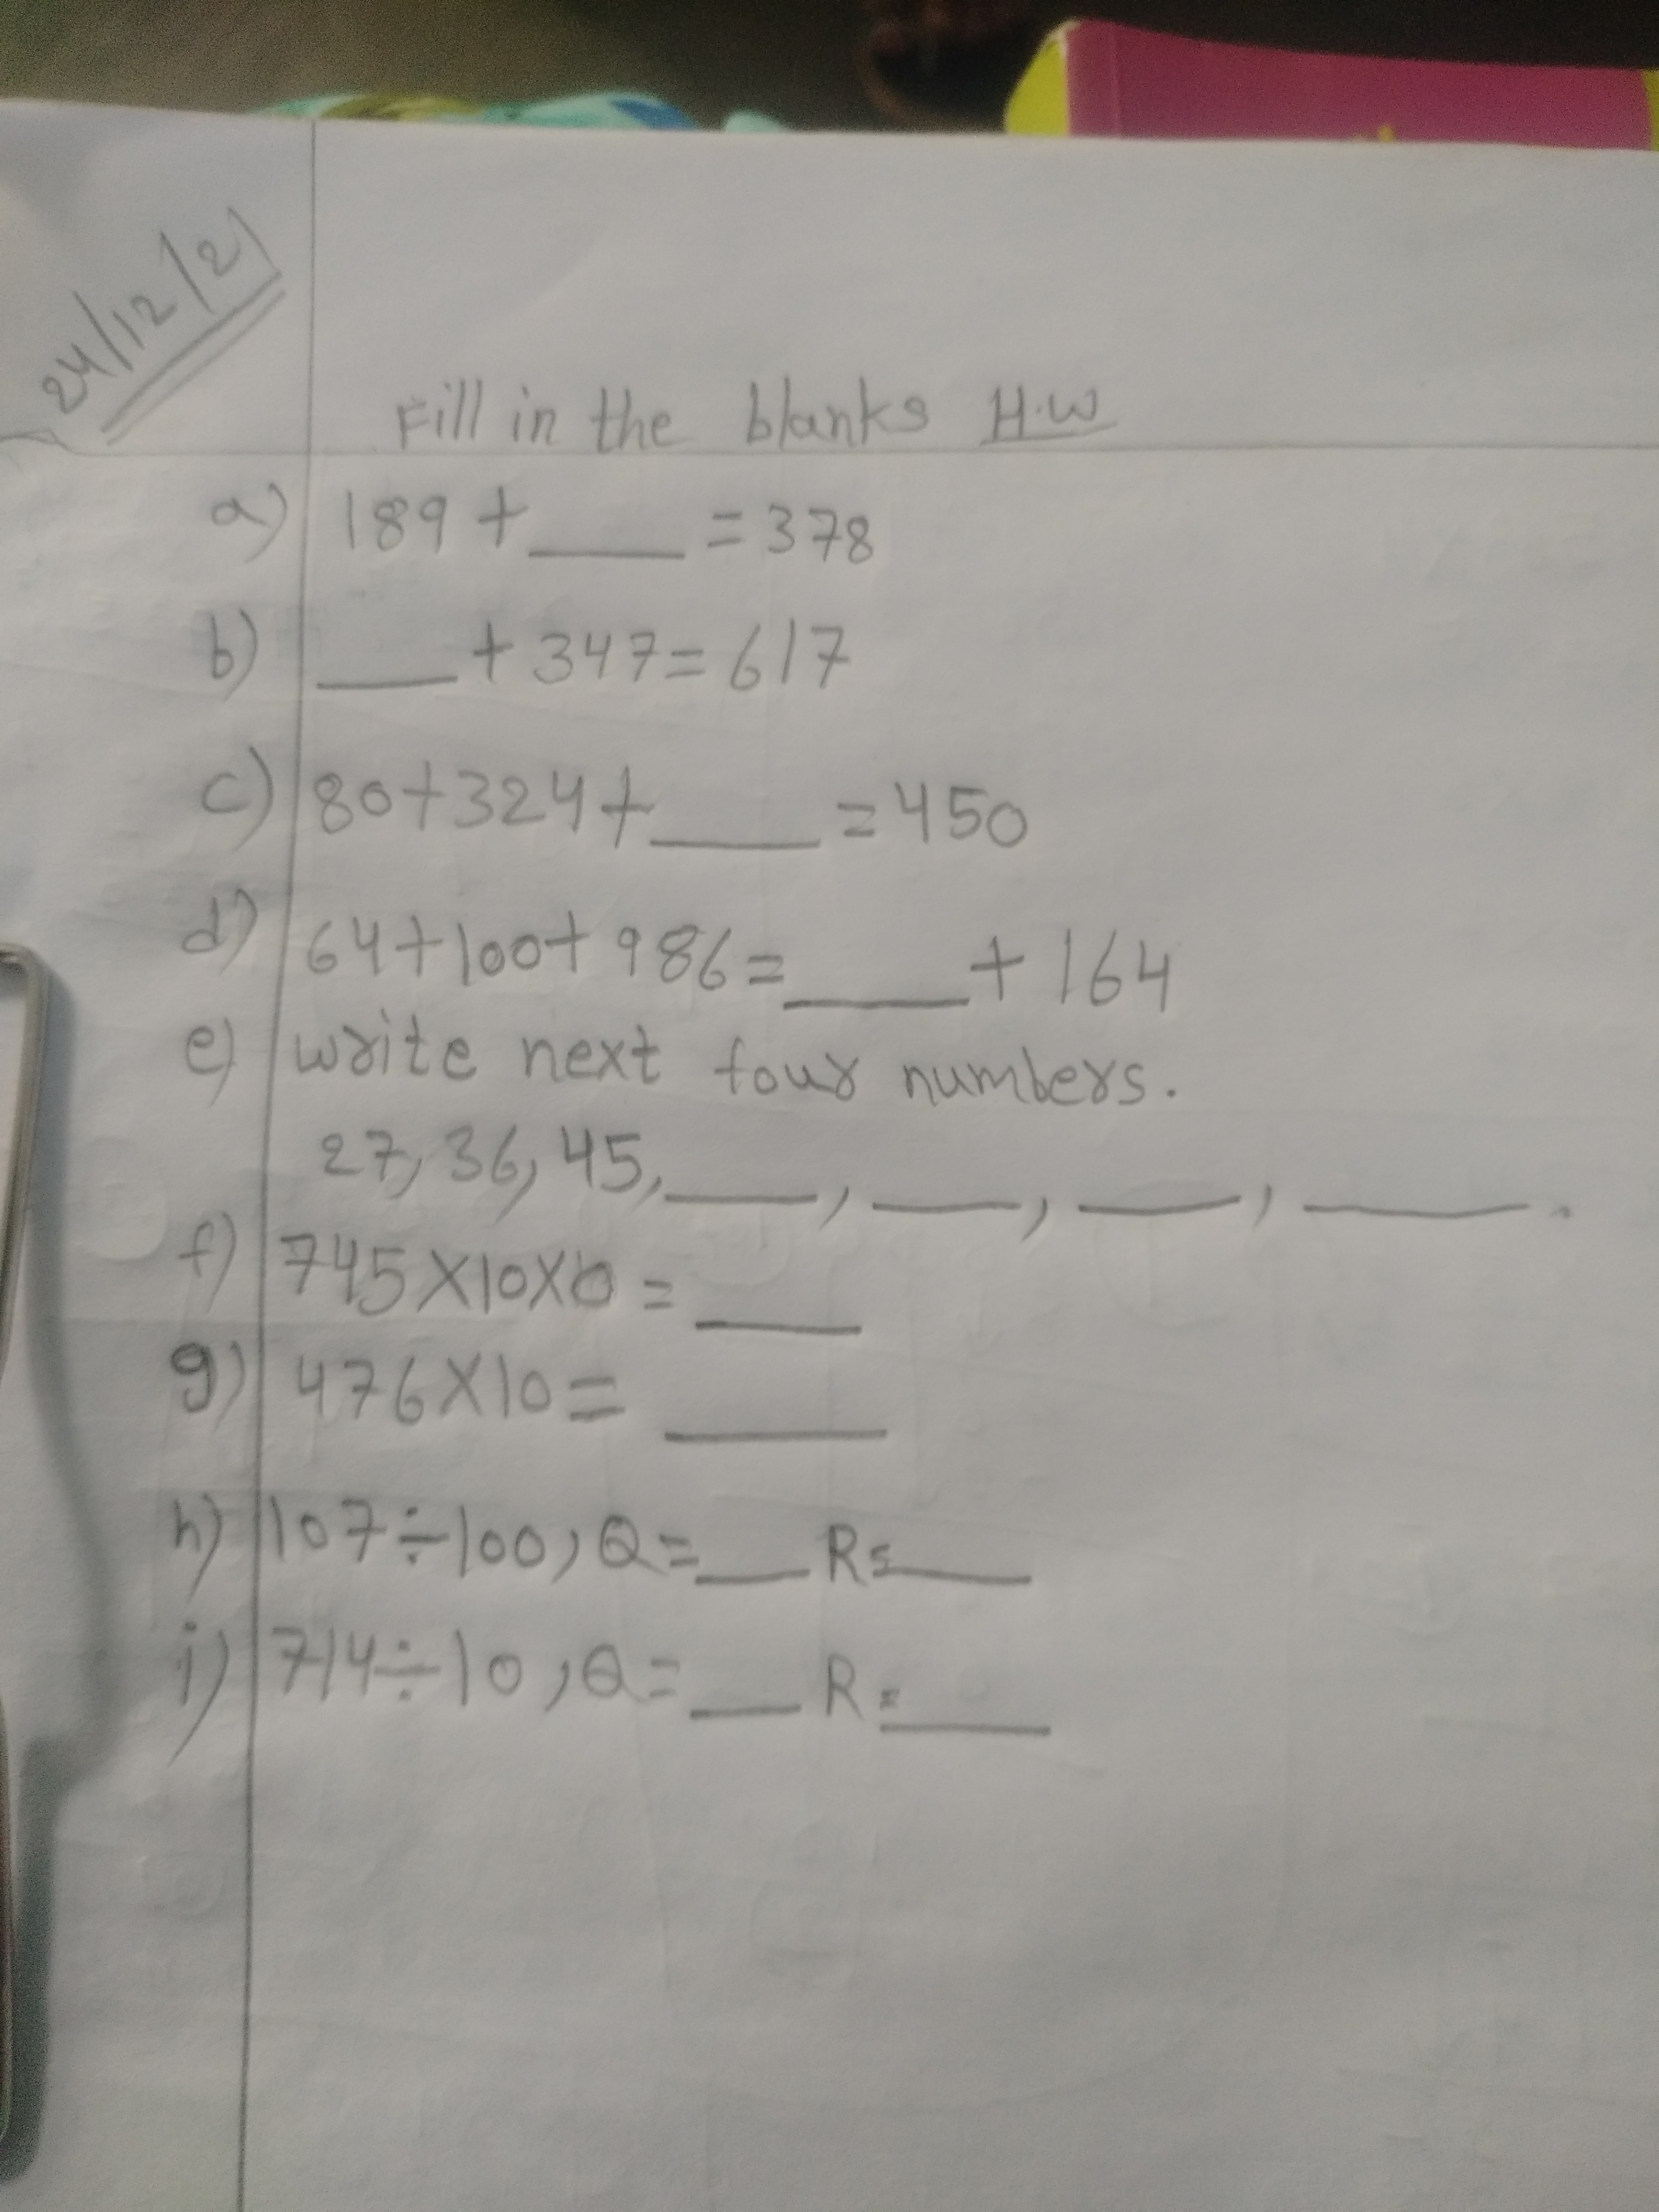 24/12/21
Fill in the blanks H.W
a) 189 + ____ = 378
b) ____ + 347 = 617
c) 80+324+ ____ = 450
d) 64+100+986= ____ + 164
e) write next four numbers.
27, 36, 45, ____, ____, ____, ____.
f) 745X10X0 = ____
g) 476X10 = ____
h) 107÷100, Q= ____ R= ____
i) 714÷10, Q= ____ R= ____